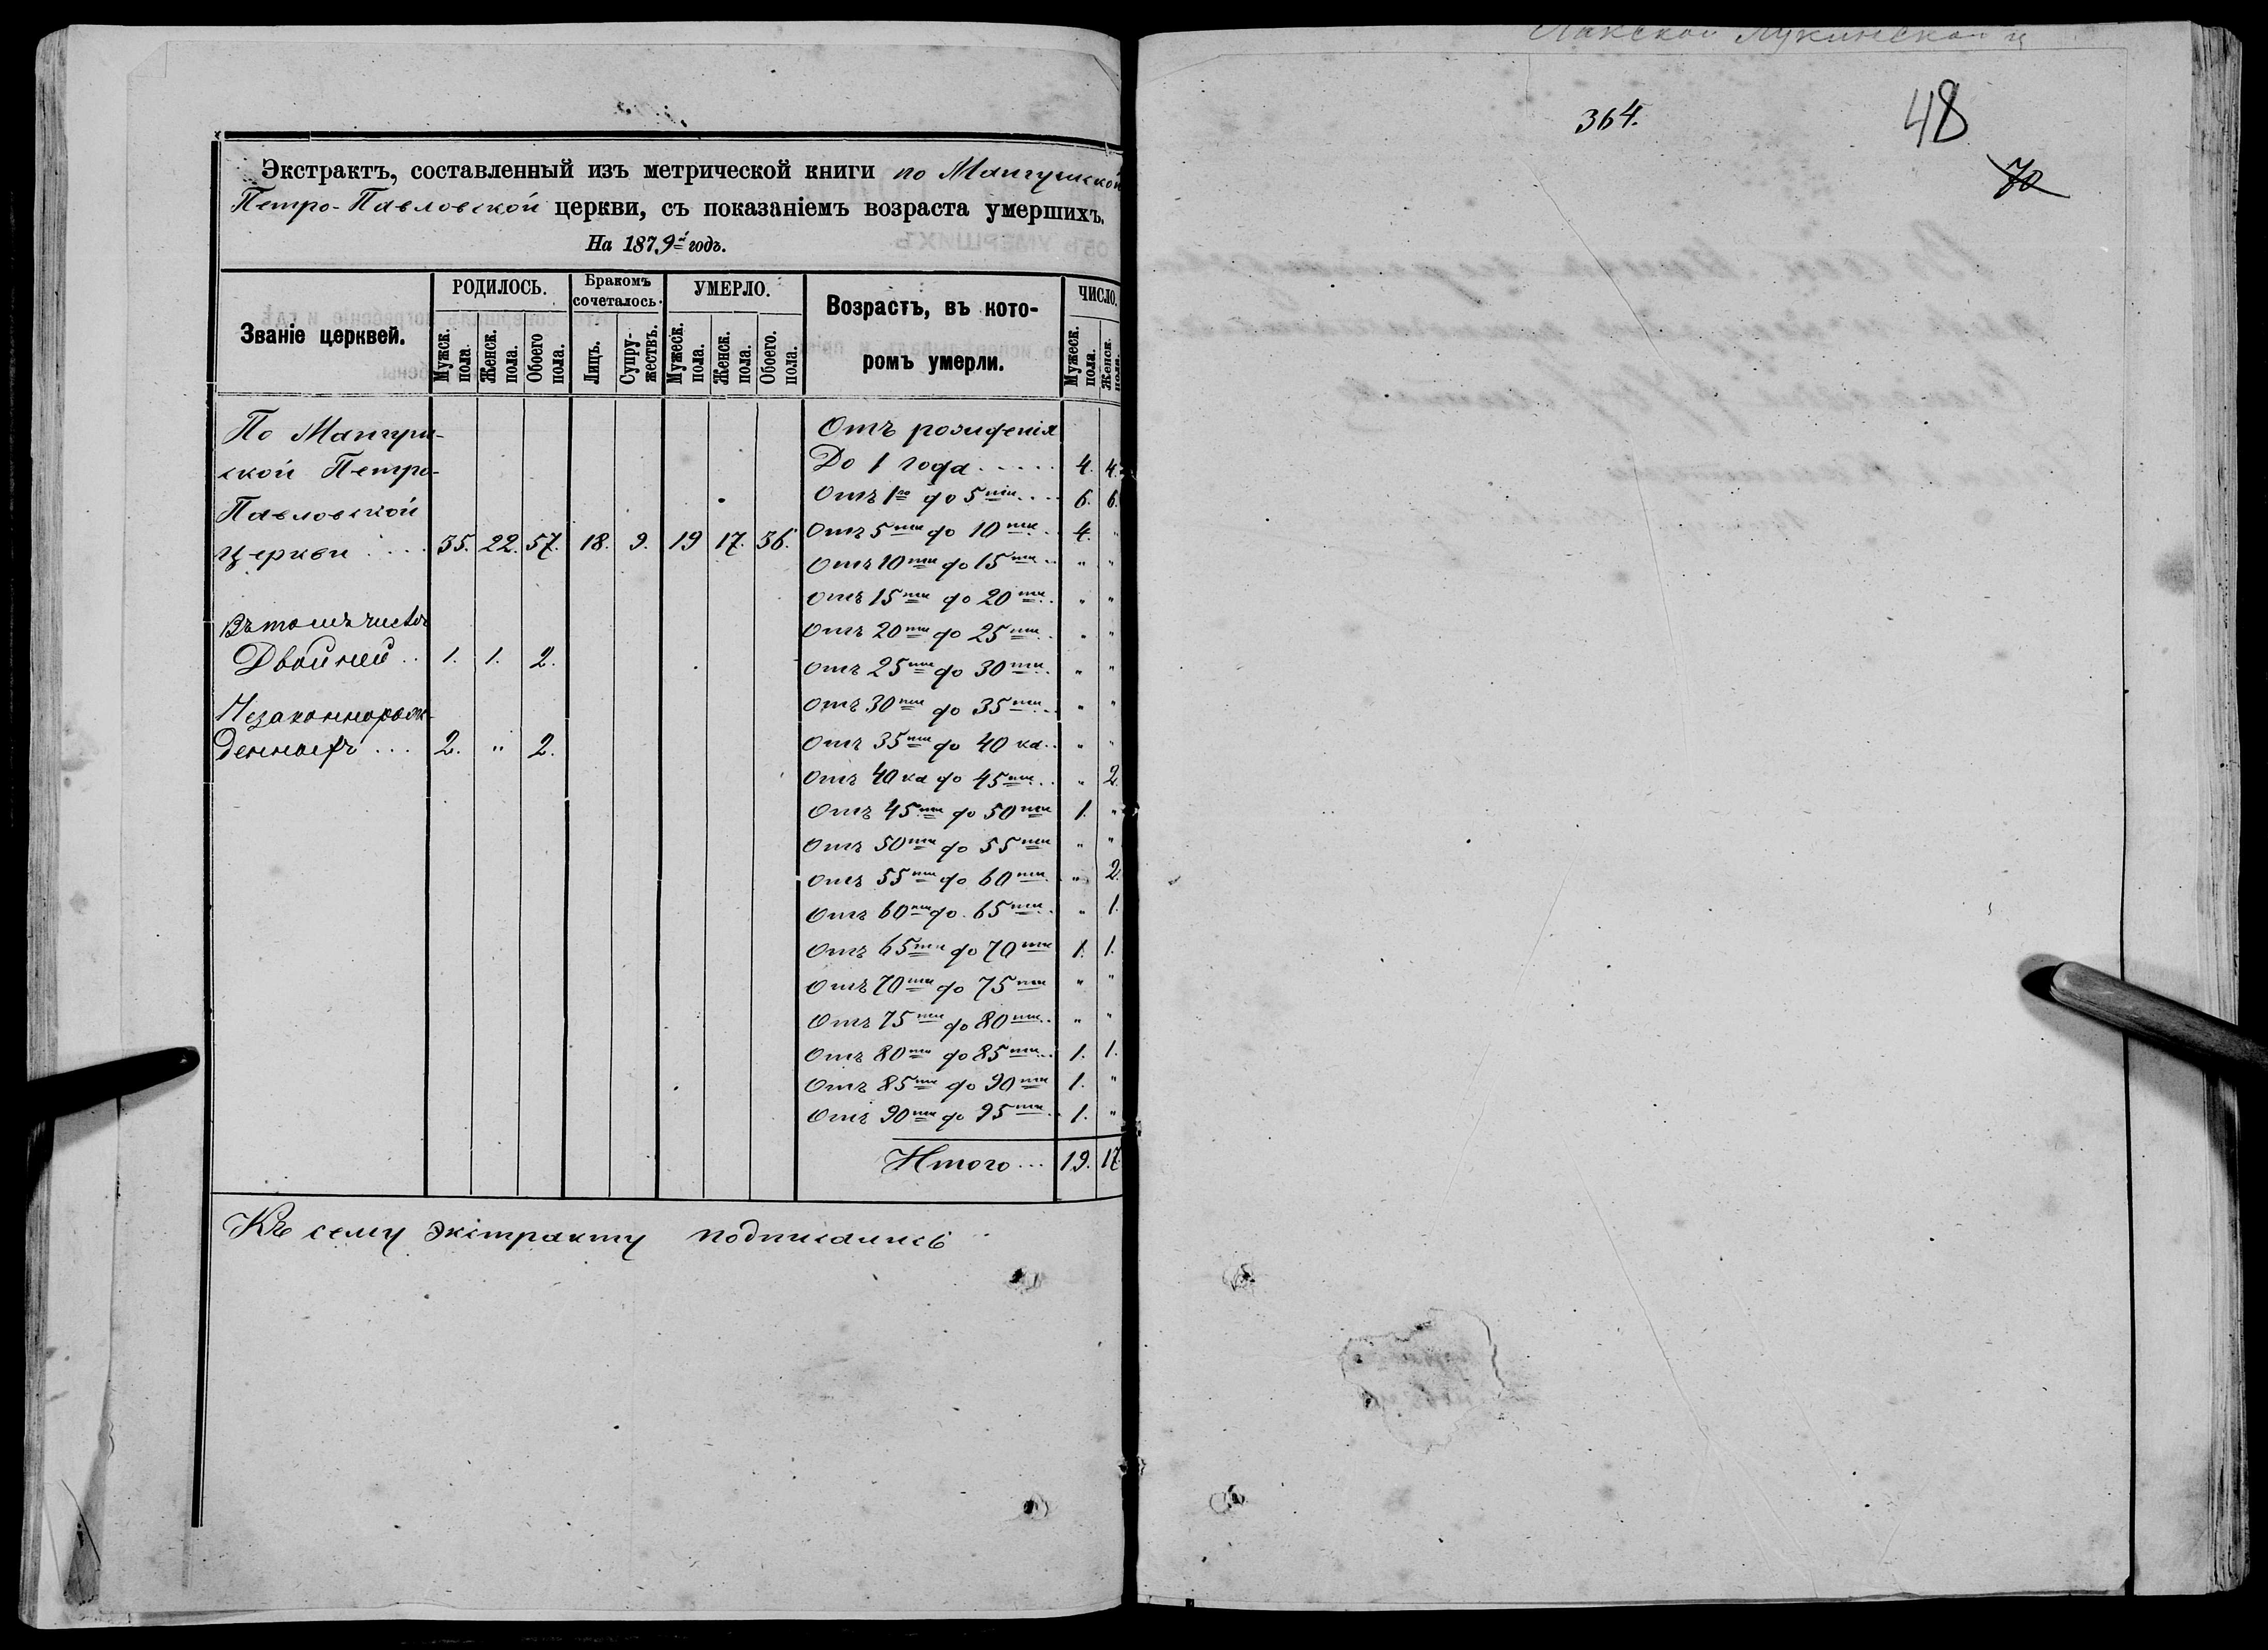 Экстрактъ, составленный изъ метрической книги по Мангушской
Петро-Павловской церкви, съ показаніемъ возраста умершихъ.
На 1879й годъ.
Званіе церквей.
РОДИЛОСЬ.
Мужск. пола.
Женск. пола.
Обоего пола.
Бракомъ сочеталось.
Лицъ.
Супружествъ.
УМЕРЛО.
Мужеск. пола.
Женск. пола.
Обоего. пола.
Возрастъ, въ кото-
ромъ умерли.
ЧИСЛО.
Мужеск. пола.
Женск. пола.
По Мангуш-
ской Петро-
Павловской
церкви .... 35. 22. 57. 18. 9. 19 17. 36.
Въ томъ числѣ
Двойней .. 1. 1. 2.
Незаконнорож-
денныхъ ... 2. " 2.
Отъ рожденія
До 1 года ..... 4. 4.
Отъ 1го до 5ти .... 6. 6.
Отъ 5ти до 10ти .. 4. "
Отъ 10ти до 15ти .. " "
Отъ 15ти до 20ти . " "
Отъ 20ти до 25ти . " "
Отъ 25ти до 30ти . " "
Отъ 30ти до 35ти .. " "
Отъ 35ти до 40ка .. " "
Отъ 40ка до 45ти .. " 2.
Отъ 45ти до 50ти 1. "
Отъ 50ти до 55ти " "
Отъ 55ти до 60ти . " 2.
Отъ 60ти до 65ти . " 1.
Отъ 65ти до 70ти 1. 1.
Отъ 70ти до 75ти " "
Отъ 75ти до 80ти .. " "
Отъ 80ти до 85ти .. 1. 1.
Отъ 85ти до 90ти 1. "
Отъ 90ти до 95ти . 1. "
Итого ... 19. 17.
Къ сему экстракту подписались
364.
48
70